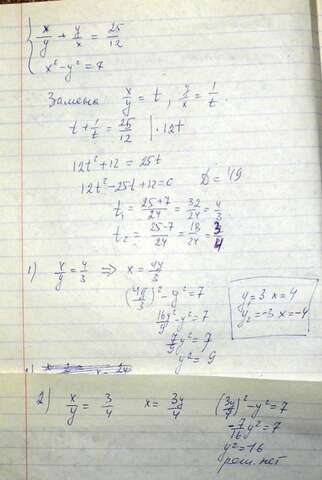 x/y + y/x = 25/12
x² - y² = 7
Замена x/y = t, y/x = 1/t.
t + 1/t = 25/12 | · 12t
12t² + 12 = 25t
12t² - 25t + 12 = 0 D = 49
t₁ = 25+7/24 = 32/24 = 4/3
t₂ = 25-7/24 = 18/24 = 3/4
1) x/y = 4/3 ⇒ x = 4y/3
(4y/3)² - y² = 7
16y²/9 - y² = 7
7/9 y² = 7
y² = 9
y₁ = 3 x = 4
y₂ = -3 x = -4
2) x/y = 3/4 x = 3y/4 (3y/4)² - y² = 7
-7/16 y² = 7
y² = -16
реш. нет